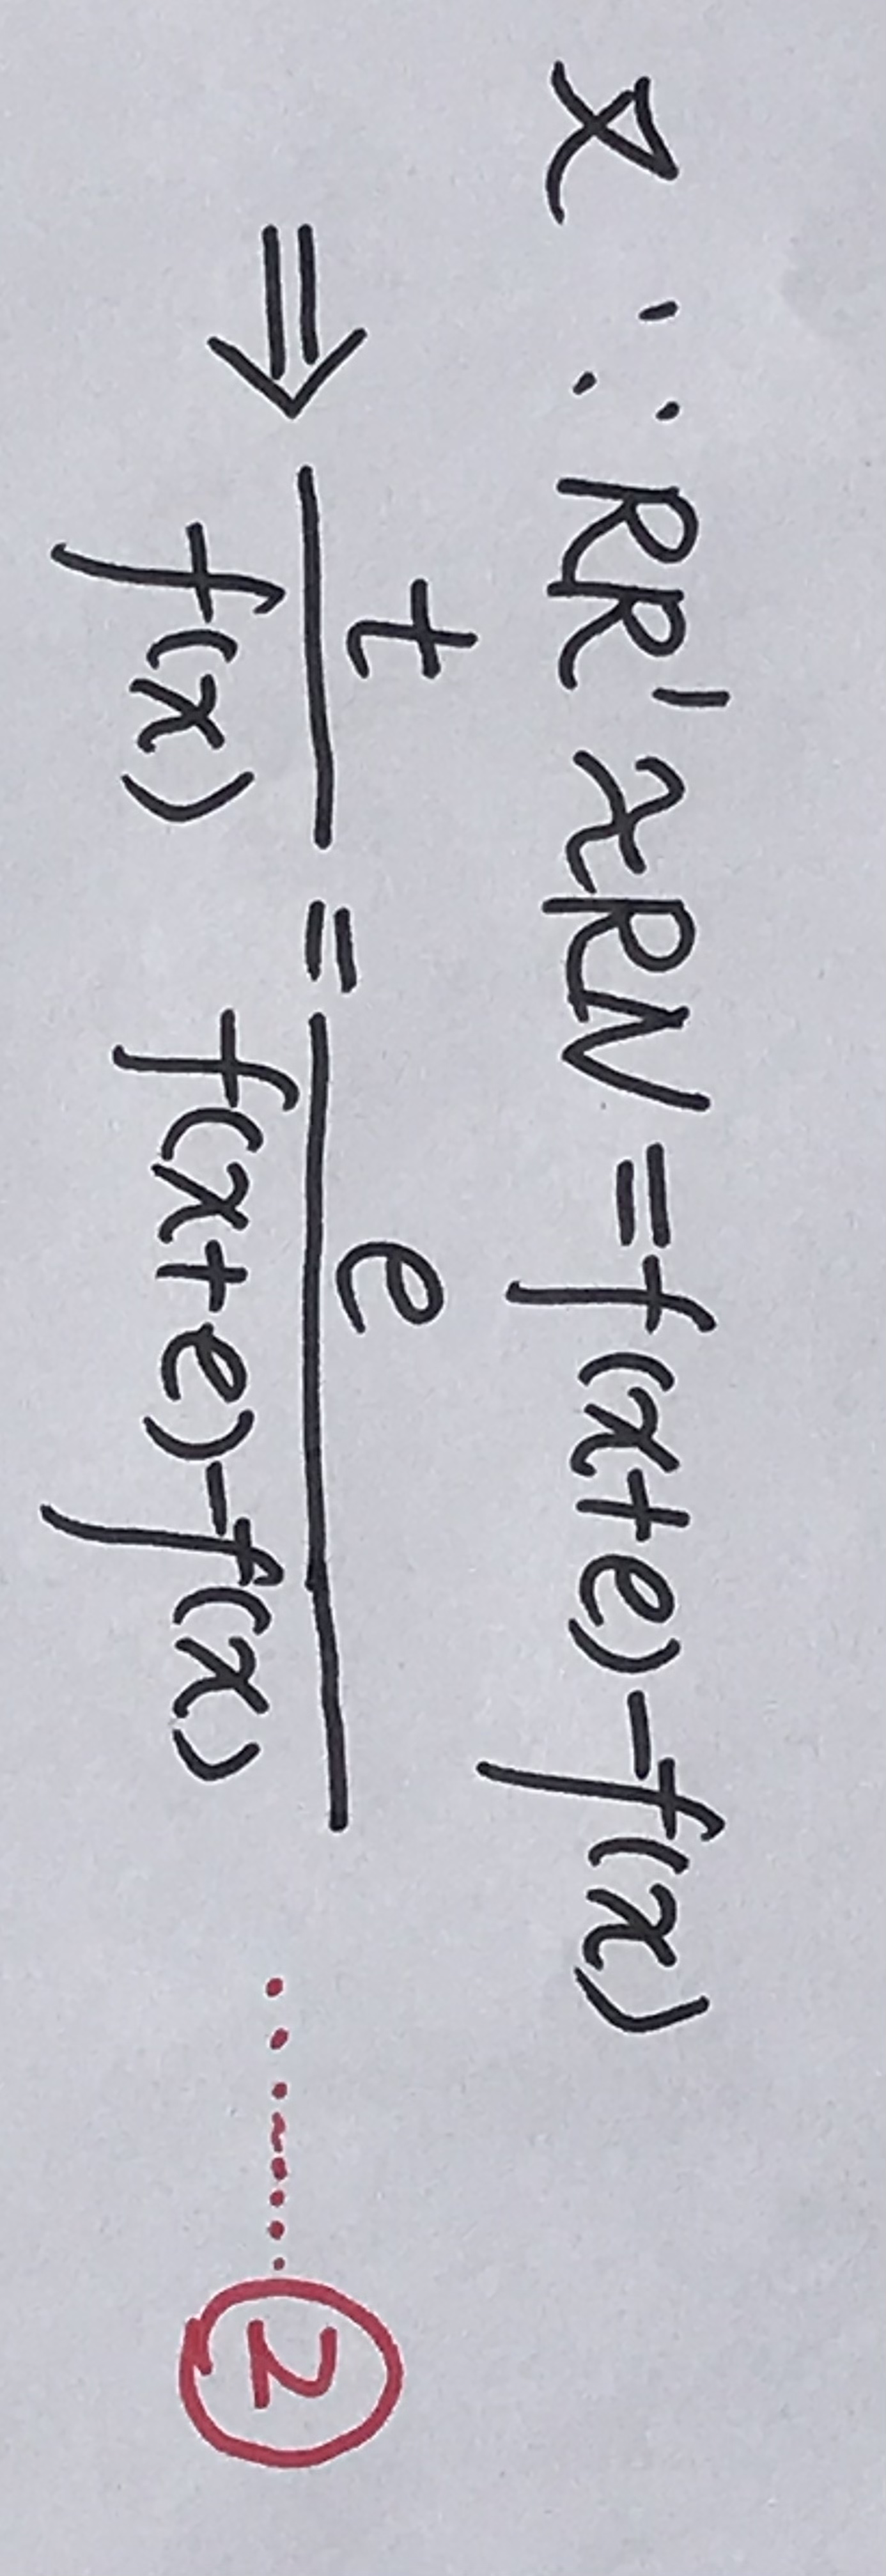 又 ∵ RR'≈RN=f(x+e)-f(x)
⇒ t/f(x) = e/(f(x+e)-f(x)) ········②